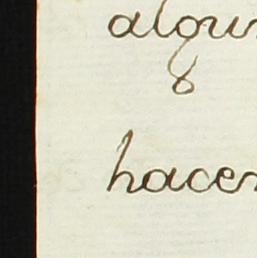 algun
hacen